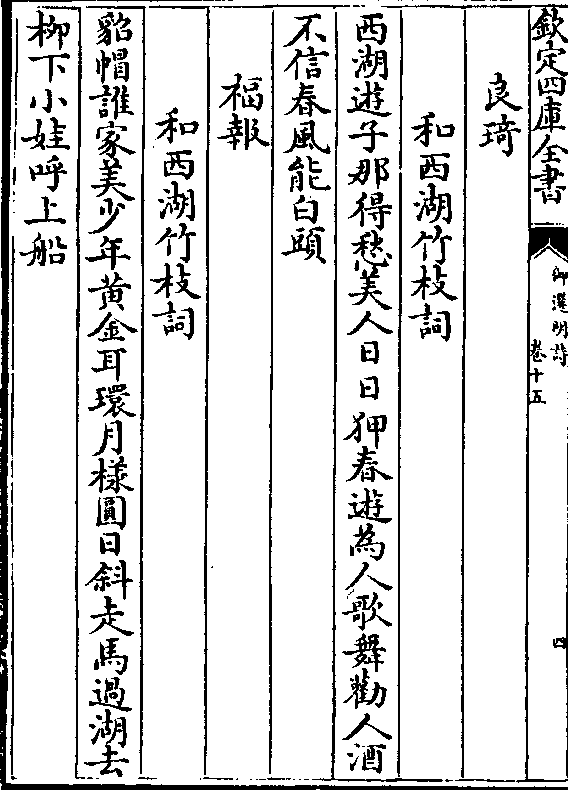 欽定四庫全書
御選明詩
卷十五
四
良琦
和西湖竹枝詞
西湖遊子那得愁美人日日狎春遊為人歌舞勸人酒
不信春風能白頭
福報
和西湖竹枝詞
貂帽誰家美少年黄金耳環月様圓日斜走馬過湖去
柳下小娃呼上船